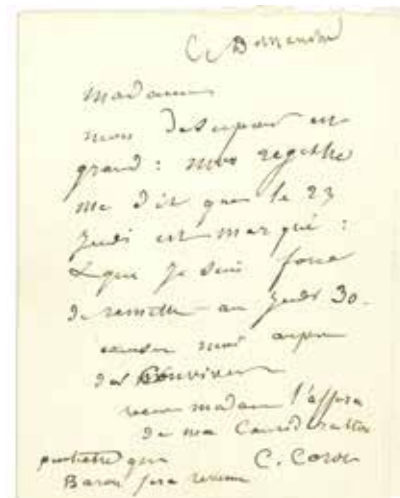 Ce Dimanche
Madame
mon desespoir est
grand : mon registre
me dit que le 23
jeudi est marqué :
& que je suis forcé
de remettre au jeudi 30.
excusez moi auprès
des Convives
recevez madame l'assura
de ma Considération
peutetre que C. Corot
Baron sera revenu